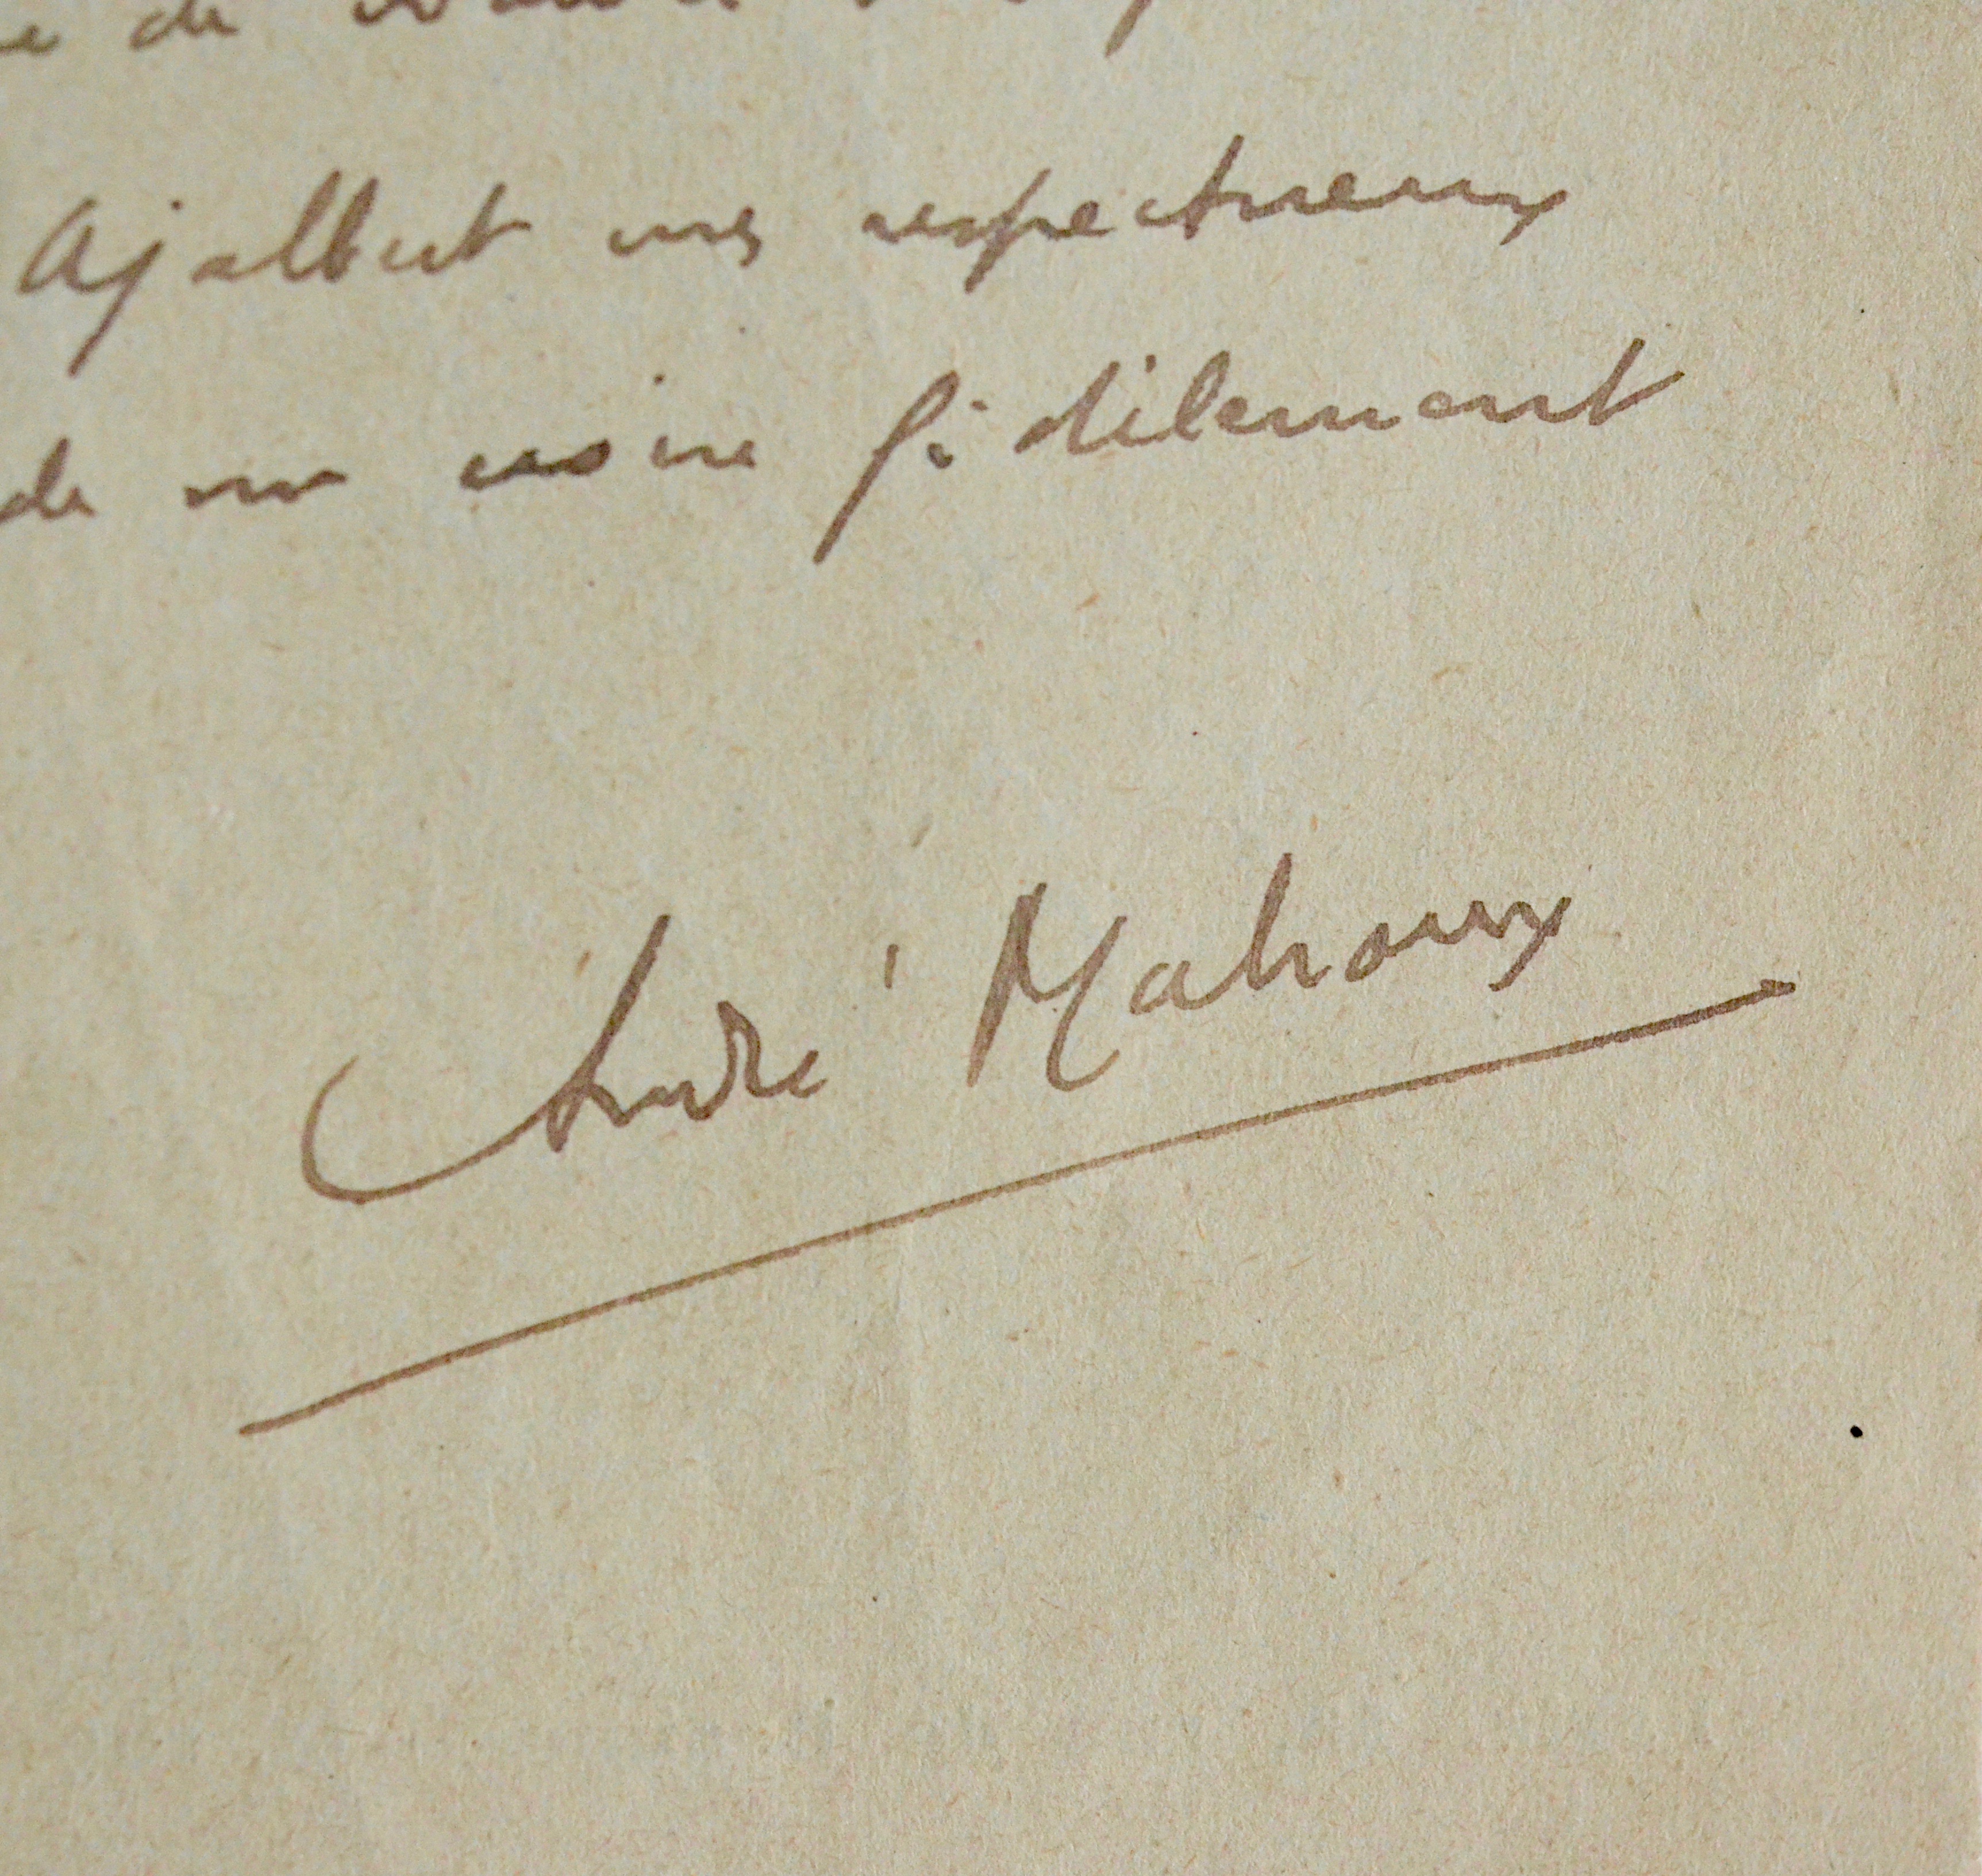 de
Ajalbert mes respectueux
de me croire fidèlement
André Mahoux